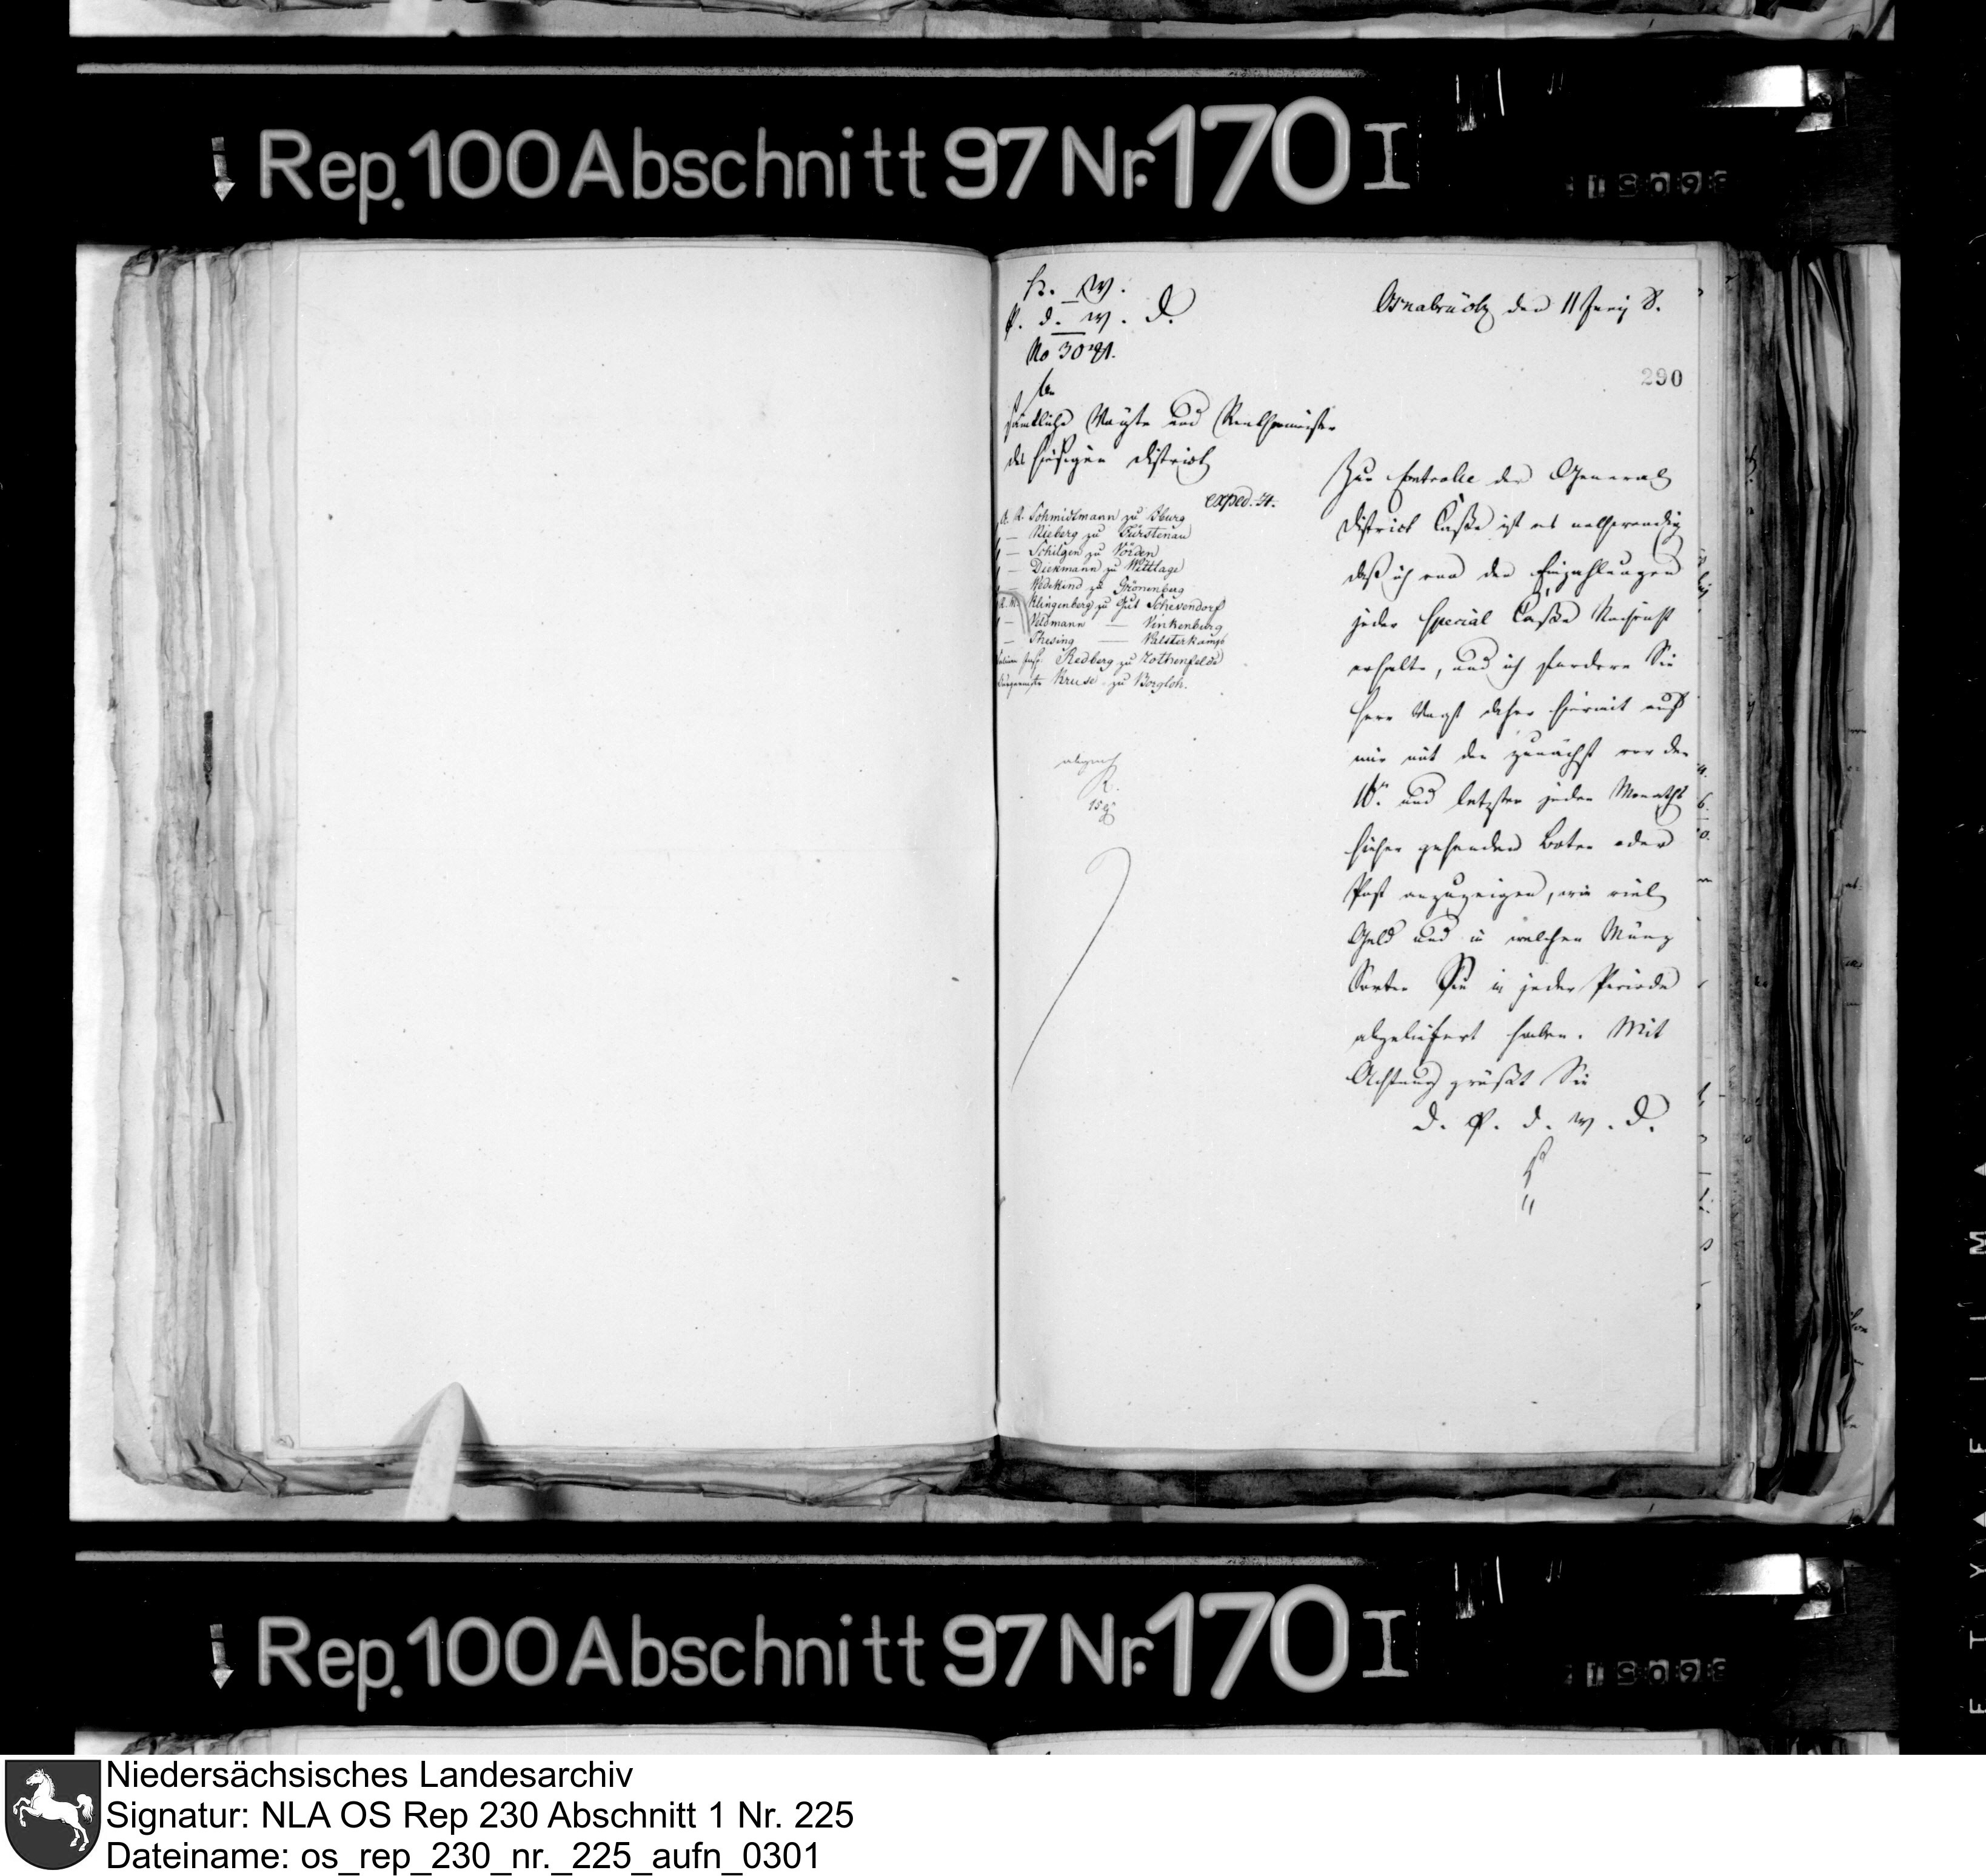 Rep. 100 Abschnitt 97 Nr. 170 I
K. W.
P. d. W. D.
No 3091.
Osnabrück den 11 Junij 8.
290
An
sämtliche Vögte und Rentmeister
des hiesigen District
exped. 4.
A. V. Schmidtmann zu Iburg
— Nieberg zu Fürstenau
— Schilgen zu Vörden
— Diekmann zu Wittlage
— Wedekind zu Grönenberg
R. M. Klingenberg zu Gut Schevendorf
— Veldmann — Vinkenburg
— Thesing — Palsterkamp
Redberg zu Rothenfelde
Kruse zu Borgloh.
15
Zur Controlle der General
District Casse ist es nothwendig
daß ich von den Einzahlungen
jeder Special Casse Nachricht
erhalte, und ich fordere Sie
Herr Vogt daher hiermit auf
mir mit den zunächst vor den
16ten und letzten jeden Monaths
hieher gehenden Boten oder
Post anzuzeigen, wie viel
Geld und in welchen Münz
Sorten Sie in jeder Periode
abgeliefert haben. Mit
Achtung grüßt Sie
D. P. d. W. D.
Rep. 100 Abschnitt 97 Nr. 170 I
Niedersächsisches Landesarchiv
Signatur: NLA OS Rep 230 Abschnitt 1 Nr. 225
Dateiname: os_rep_230_nr._225_aufn_0301